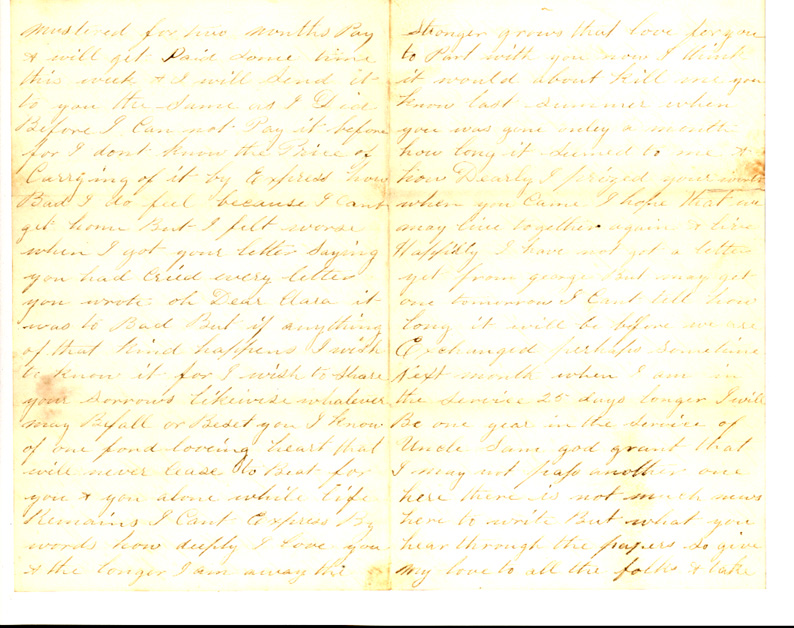 mustered for two months Pay
& will get Paid some time
this week & I will send it
to you the same as I Did
Before I Can not Pay it before
for I dont know the Price of
Carrying of it by Express how
Bad I do feel because I Cant
get home But I felt worse
when I got your letter saying
you had Cried every letter
you wrote: oh Dear Clara it
was to Bad But if anything
of that kind happens I wish
to know it for I wish to share
your sorrows likewise whatever
may Befall or Beset you I know
of one fond loveing heart that
will never cease to Beat for
you & you alone while life
Remains I Cant Express By
words how deeply I love you
& the longer I am away the
stronger grows that love for you
to Part with you now I think
it would about kill me you
know last summer when
you was gone onley a month
how long it seemed to me &
how Dearly I prized your
when you Came I hope that we
may live together again & live
Happily I have not got a letter
yet from george But may get
one tomorrow I Cant tell how
long it will be before we are
Exchanged perhaps sometime
Next month when I am in
the service 25 days longer I will
Be one year in the service of
Uncle Sam god grant that
I may not pass another one
here there is not much news
here to write But what you
hear through the papers so give
my love to all the folks & take